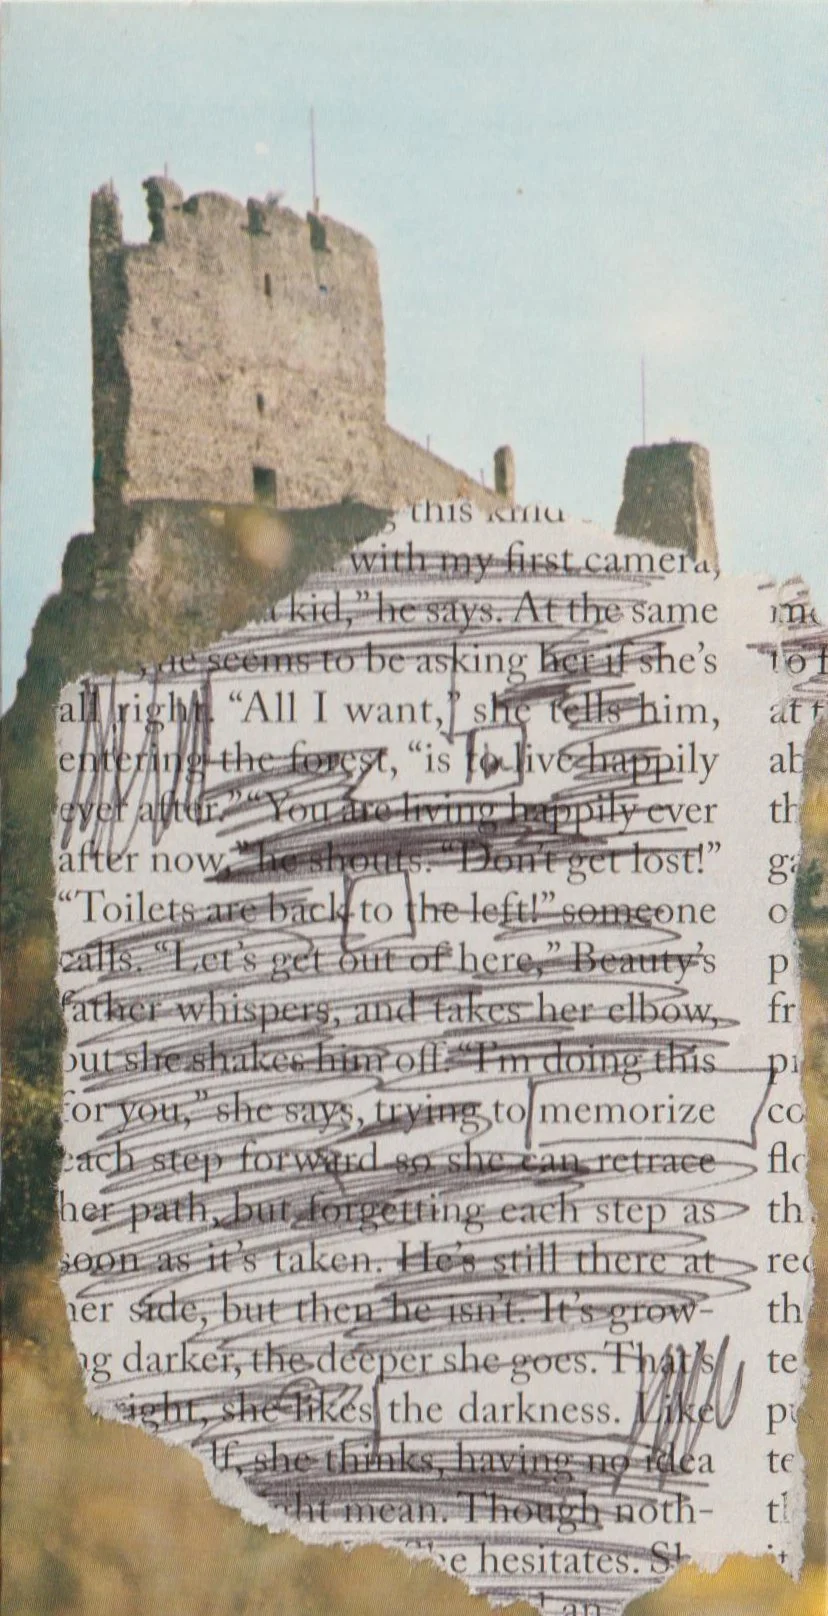 this kind
with my first camera,
kid," he says. At the same
he seems to be asking her if she's
all right. "All I want," she tells him,
entering the forest, "is to live happily
ever after." "You are living happily ever
after now," he shouts. "Don't get lost!"
"Toilets are back to the left!" someone
calls. "Let's get out of here," Beauty's
father whispers, and takes her elbow,
but she shakes him off. "I'm doing this
for you," she says, trying to memorize
each step forward so she can retrace
her path, but forgetting each step as
soon as it's taken. He's still there at
her side, but then he isn't. It's grow-
ng darker, the deeper she goes. That's
right, she likes the darkness. Like
lf, she thinks, having no idea
ht mean. Though noth-
he hesitates. Sh
an
to
at
ab
th
ga
o
p
fr
pi
co
flo
th
rec
th
te
pu
te